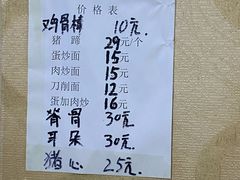 价格表
鸡骨棒 10元.
猪蹄 29元/个
蛋炒面 15元
肉炒面 15元
刀削面 12元
蛋加肉炒 16元
脊骨 30元
耳朵 30元.
猪心 25元.